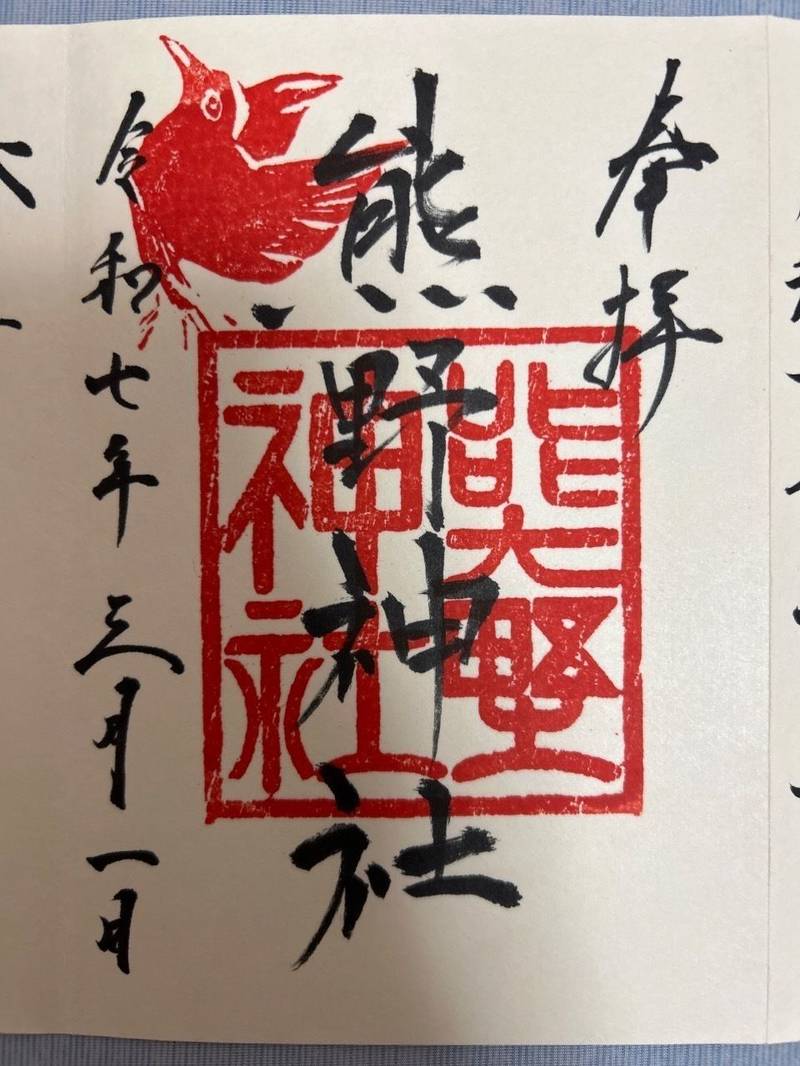 奉拝
熊野神社
熊野
神社
令和七年三月一日